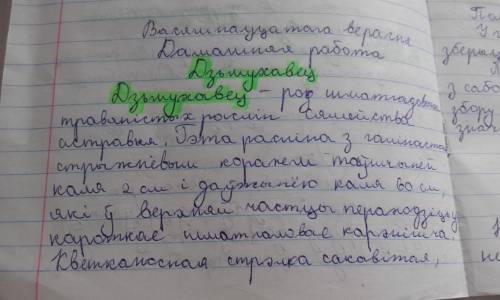 Васямнаццатага верасня
Дамашняя работа
Дзьмухавец
Дзьмухавец - род шматгадовых
травяністых раслін сямейства
астравыя. Гэта расліна з галінастым
стрыжнёвым коранем таўшчынёй
каля 2 см і даўжынёю каля 60 см,
які ў верхняй частцы пераходзіць у
кароткае шматгаловае карэнішча.
Кветканосная стрэлка сакавітая,
збору